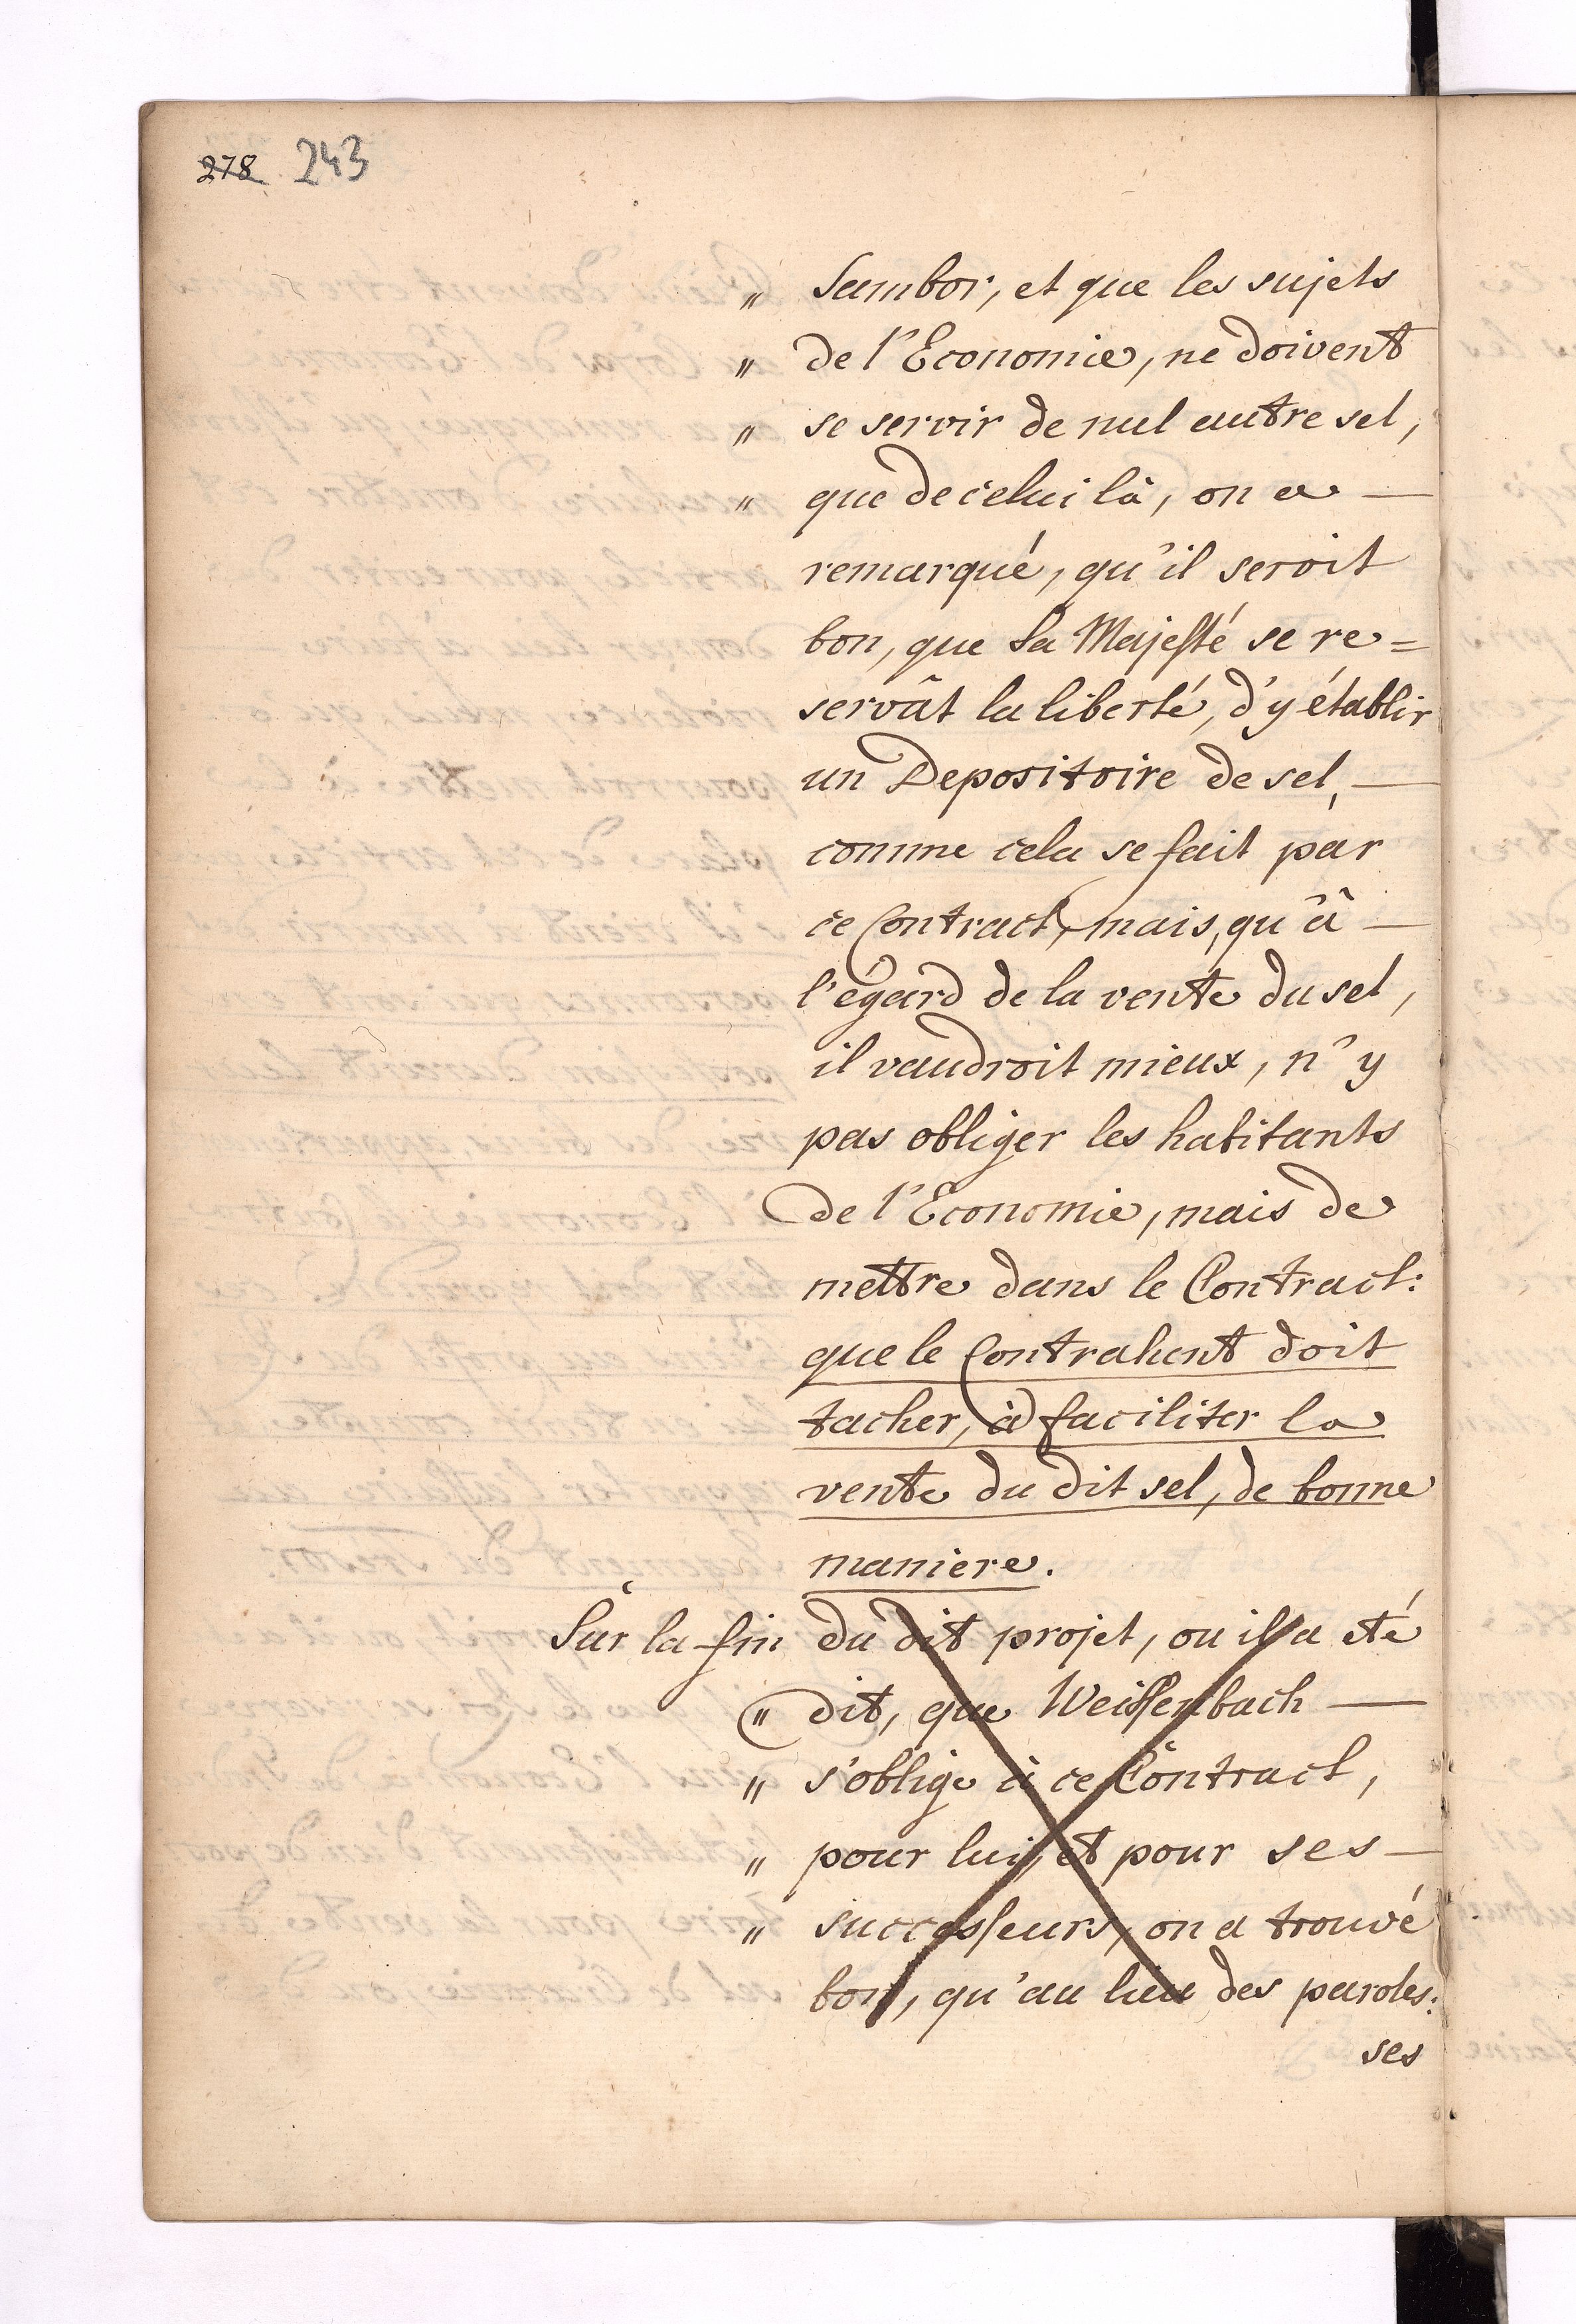 278 243
" Sambor, et que les sujets
" de l'Economie, ne doivent
" se servir de nul autre sel,
" que de celui là, on a —
remarqué, qu'il seroit
bon, que Sa Majesté se re=
servât la liberté, d'y établir
un Depositoire de sel, —
comme cela se fait par
ce Contract, mais, qu'â —
l'égard de la vente du sel,
il vaudroit mieux, n'y
pas obliger les habitants
de l'Economie, mais de
mettre dans le Contract:
que le Contrahent doit
tacher, à faciliter la
vente du dit sel, de bonne
maniere.
Sur la fin du dit projet, ou il a eté
" dit, que Weissenbach —
" s'oblige à ce Contract,
" pour lui, et pour ses —
" successeurs, on a trouvé
bon, qu'au lieu des paroles:
ses